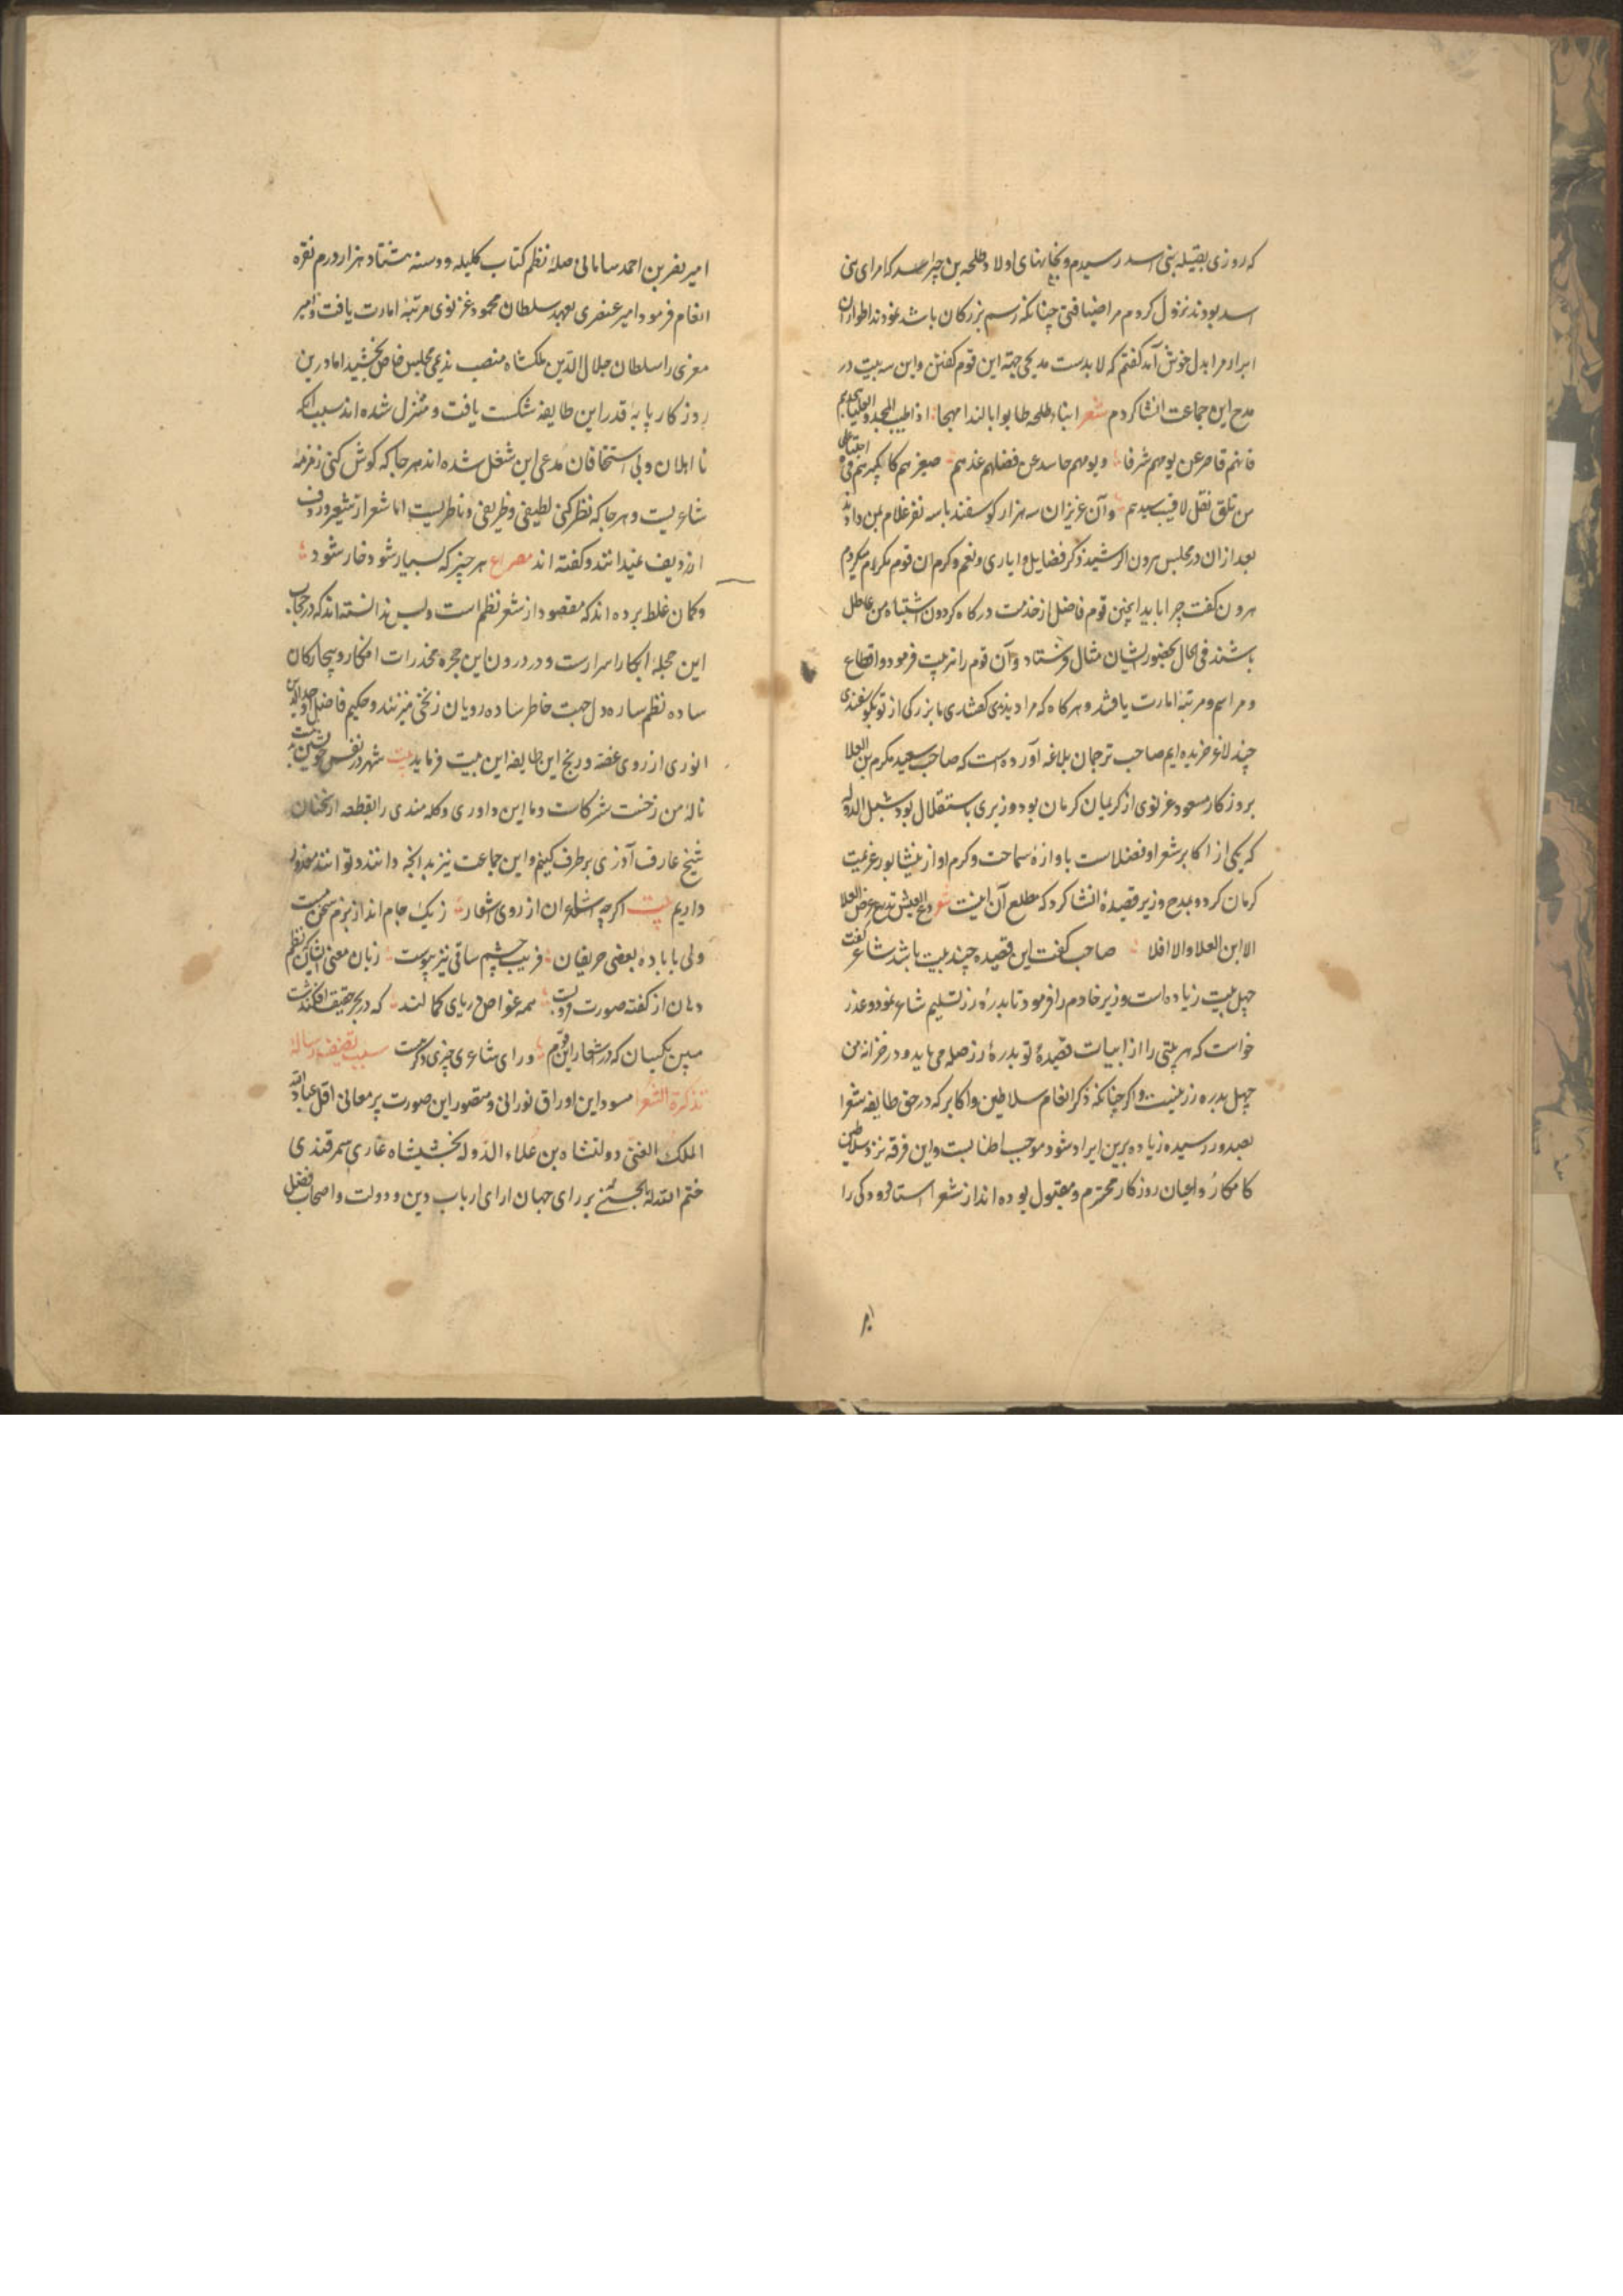 که روزی بقبیله بنی اسد رسیدم و بخانهای اولاد طلحه بن که امرای بنی
اسد بودند نزول کردم مرا ضیافتی چنانکه رسم بزرکان باشد نمودند اطوار آن
ابرار مرا بدل خوش آمد کفتم که لابدست مدیحی جهة این قوم کفتن و این سه بیت در
مدح این جماعت انشا کردم شعر ابناء طلحه طابوا بالندا مهجا اذا طیب المجد و العلیا
فانهم قاصر عن یومهم شرفا و یومهم حاسد عن فضلهم غدهم صغیرهم کا کبیرهم فی
من تلق تقل لاقیت سیدهم و آن عزیزان سه هزار کوسفند با سه نفر غلام بمن دادند
بعد از ان در مجلس هرون الرشید ذکر فضایل و ایاری و نعم و کرم ان قوم مکرم میکردم
هرون کفت چرا باید اینچنین قوم فاضل از خدمت درکاه کردون اشتباه من عاطل
باشند فی الحال بحضور ایشان مثال فرستاد و آن قوم را تربیت فرمود و اقطاع
و مراسم و مرتبهٔ امارت یافتند و هرکاه که مرا دیدندی کفتندی ما بزرکی از تو بکوسفندی
چند لاغر خریده ایم صاحب ترجمان بلاغه آورده است که صاحب سعید مکرم بن العلا
بروزکار مسعود غزنوی از کریمان کرمان بود و وزیری باستقلال بود شبل الدوله
که یکی از اکابر شعرا و فضلاست باوازهٔ سماحت و کرم او از نیشابور عزیمت
کرمان کرد و بمدح وزیر قصیدهٔ انشا کرد که مطلع آن اینست شعر دع العیش تدرع عرض الفلا
الا ابن العلا و الا فلا صاحب کفت این قصیده چند بیت باشد شاعر کفت
چهل بیت زیاده است وزیر خادم را فرمود تا بدرهٔ زر تسلیم شاعر نمود و عذر
خواست که هر بیتی را از ابیات قصیدهٔ تو بدرهٔ زر صله می باید و در خزانه من
چهل بدره زر نیست و اکر چنانکه ذکر انعام سلاطین و اکابر که در حق طایفه شعرا
بصدور رسیده زیاده برین ایراد شود موجب اطنابست و این فرقه نزد سلاطین
کامکار و اعیان روزکار محترم و مقبول بوده اند از شعرا استاد رودکی را
امیر نصر بن احمد سامانی صلهٔ نظم کتاب کلیله و دمنه هشتاد هزار درم نقره
انعام فرمود و امیر عنصری بعهد سلطان محمود غزنوی مرتبهٔ امارت یافت و امیر
معزی را سلطان جلال الدین ملکشاه منصب ندیمی مجلس خاص بخشید اما درین
روزکار پایهٔ قدر این طایفه شکست یافت و متنزل شده اند سبب آنکه
نااهلان و بی استحقاقان مدعی این شغل شده اند هر جا که کوش کنی زمزمهٔ
شاعریست و هر جا که نظر کنی لطیفی و ظریفی و ناظریست اما شعر از شعیر و ردف
از ردیف نمیدانند و کفته اند مصراع هر چیز که بسیار شود خار شود
و کمان غلط برده اند که مقصود از شعر نظم است و بس ندانسته اند که در حجاب
این حجلهٔ ابکار اسرارست و در درون این حجره مخدرات افکار و بیچارکان
ساده نظم ساره دل جهت خاطر ساده رویان زنخی میزنند و حکیم فاضل اوحد الدین
انوری از روی غصه و رنج این طایفه این بیت فرماید بیت
نالهٔ من زخنت شرکاست و ما این داوری و کله مندی را بقطعه از سخنان
شیخ عارف آذری بر طرف کنیم و این جماعت نیز بدانچه دانند و توانند معذور
داریم بیت اکرچه شاعران از روی اشعار ز یک جام اند از بزم سخن مست
ولی با بادهٔ بعضی حریفان فریب چشم ساقی نیز پیوست زبان معنی ایشان که نظم
دهان از کفته صورت فروبست همه غواص دریای کمالند که در بحر حقیقت افکندشت
مبین یکسان که در اشعار این قوم ورای شاعری چیزی دکرهست سبب تصنیف رسالهٔ
تذکرة الشعرا مسود این اوراق نورانی و مصور این صورت پر معانی اقل عباد الله
الملک الغنی دولتشاه بن علاء الدوله بختیشاه غازی سمرقندی
ختم الله له بالحسنی بر رای جهان ارای ارباب دین و دولت و اصحاب فضل